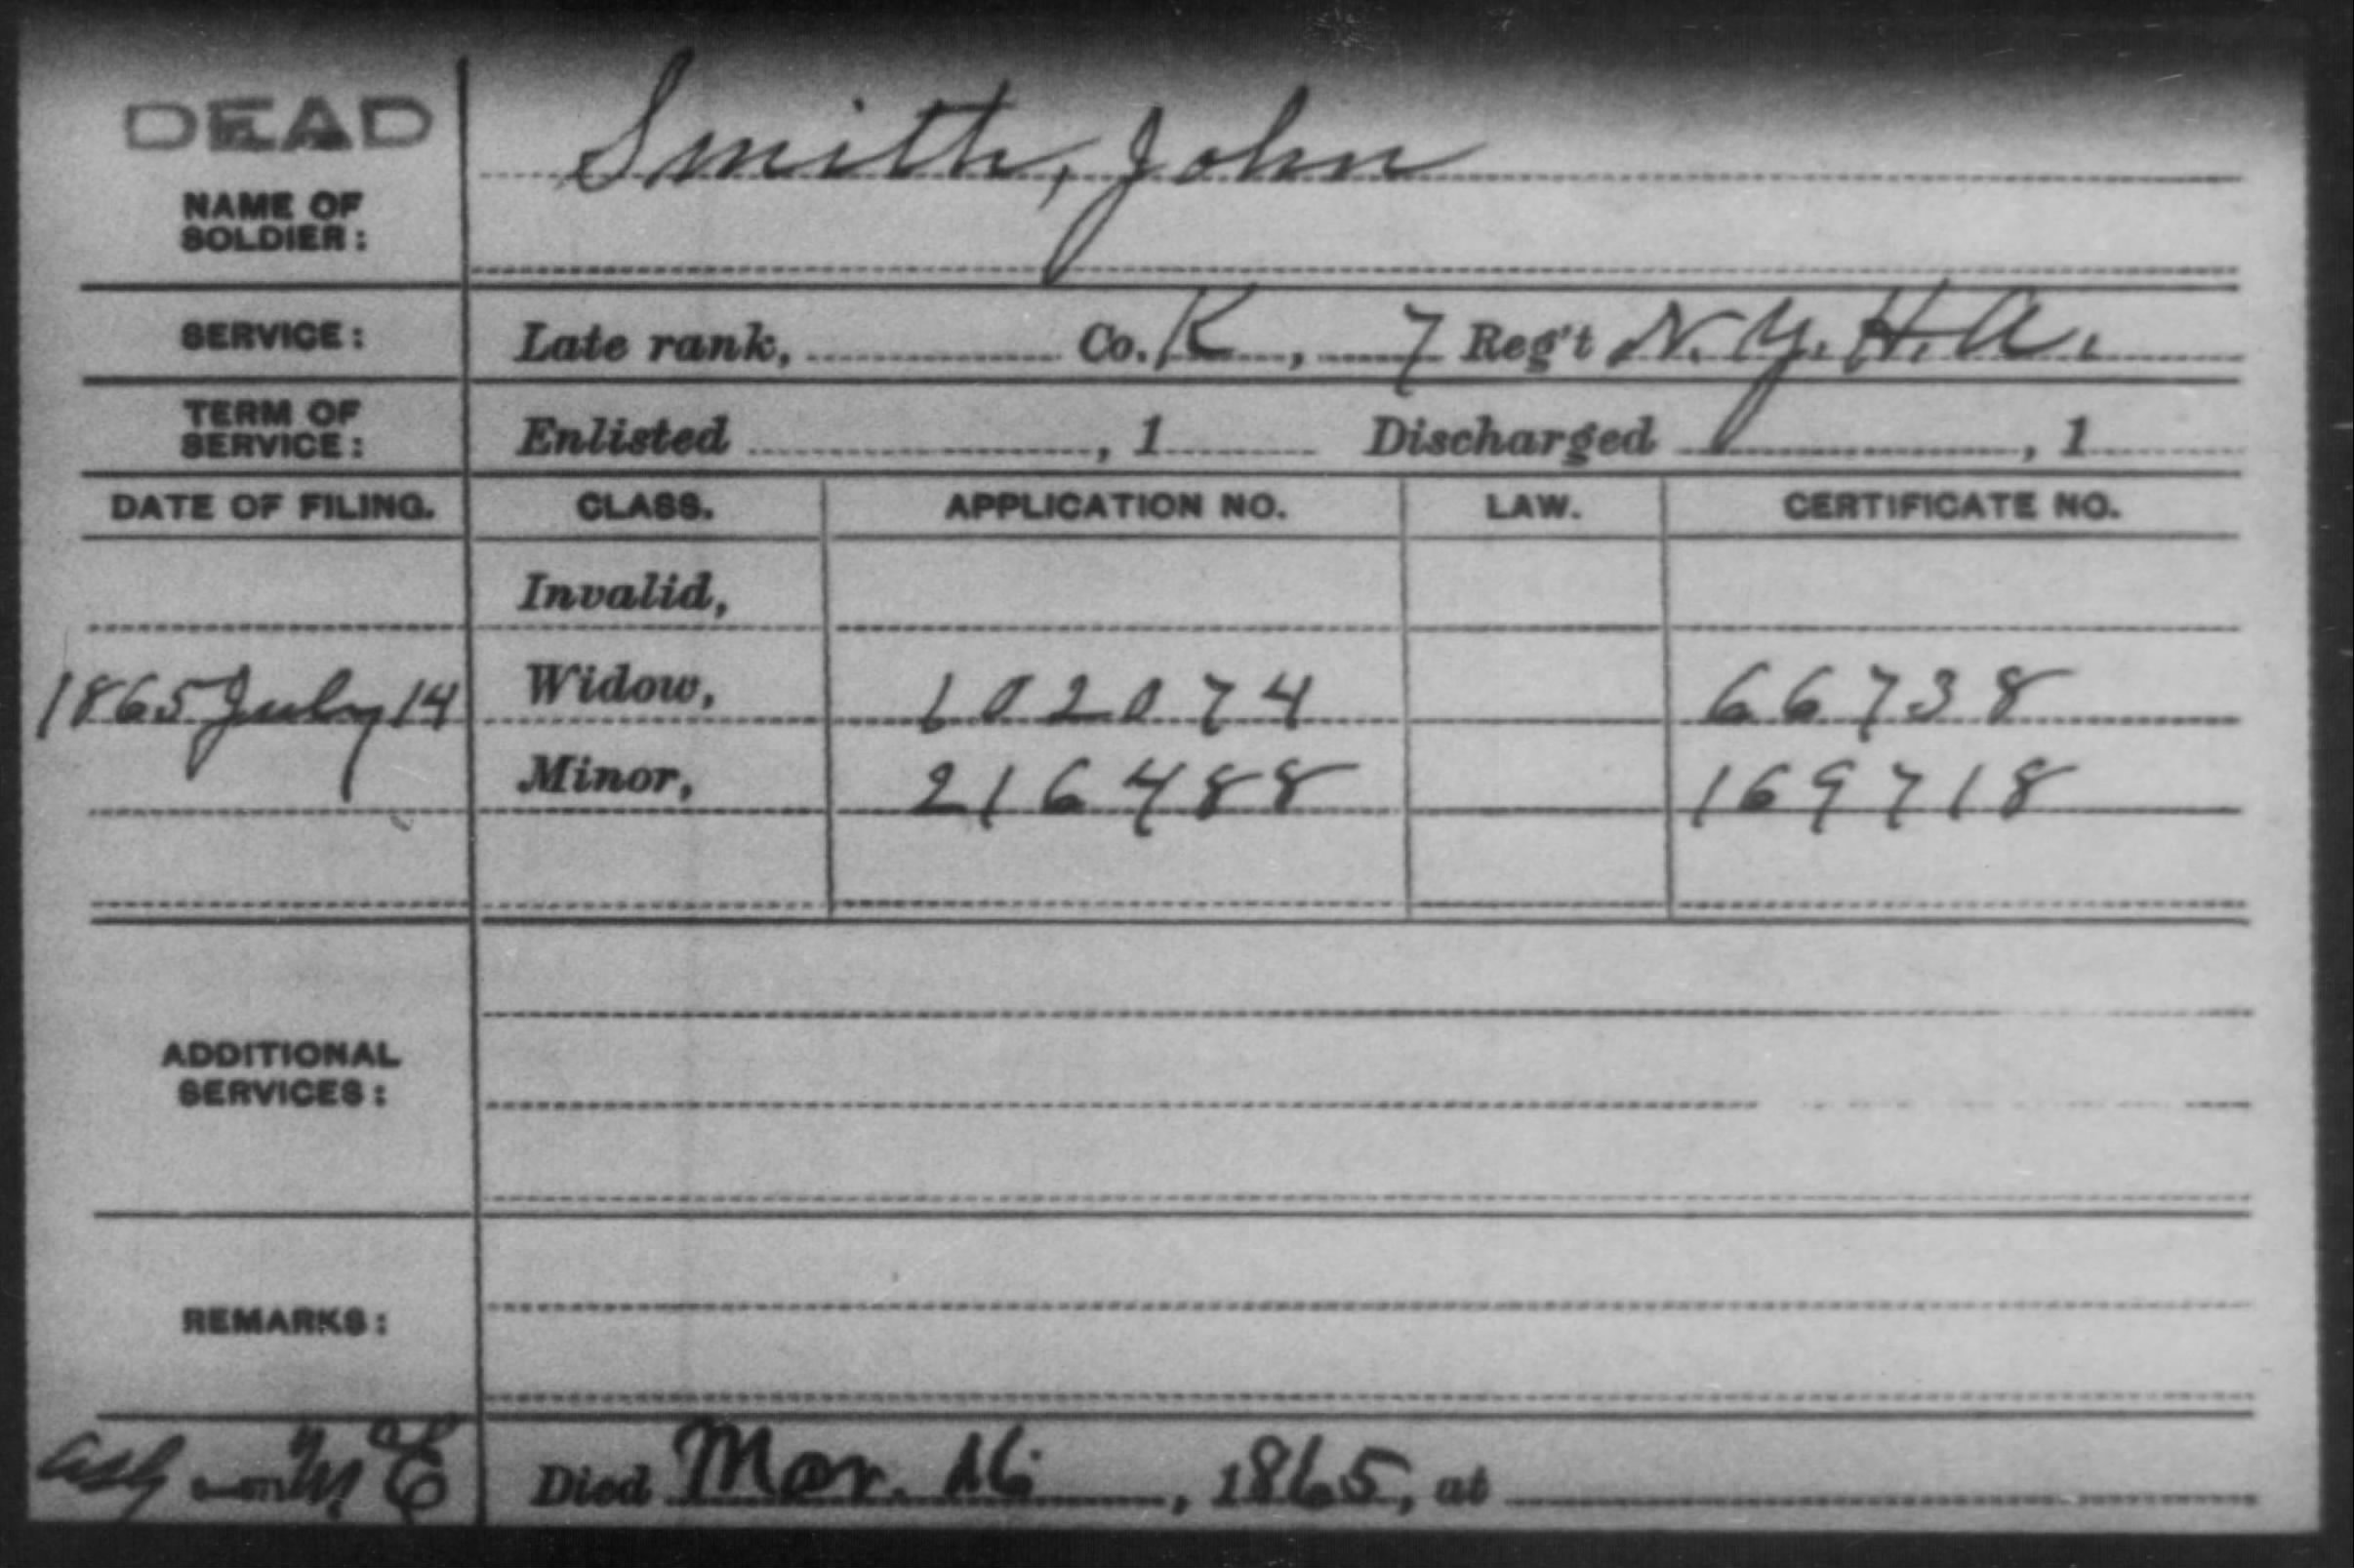 DEAD
Smith, John
NAME OF
SOLDIER:
SERVICE: Late rank, Co. K, 7 Reg't N.Y.H.A.
TERM OF
SERVICE: Enlisted , 1 Discharged , 1
DATE OF FILING. CLASS. APPLICATION NO. LAW. CERTIFICATE NO.
Invalid,
1865 July 14 Widow, 102074 66738
Minor, 216488 169718
ADDITIONAL
SERVICES:
REMARKS:
Died Mar. 26, 1865, at